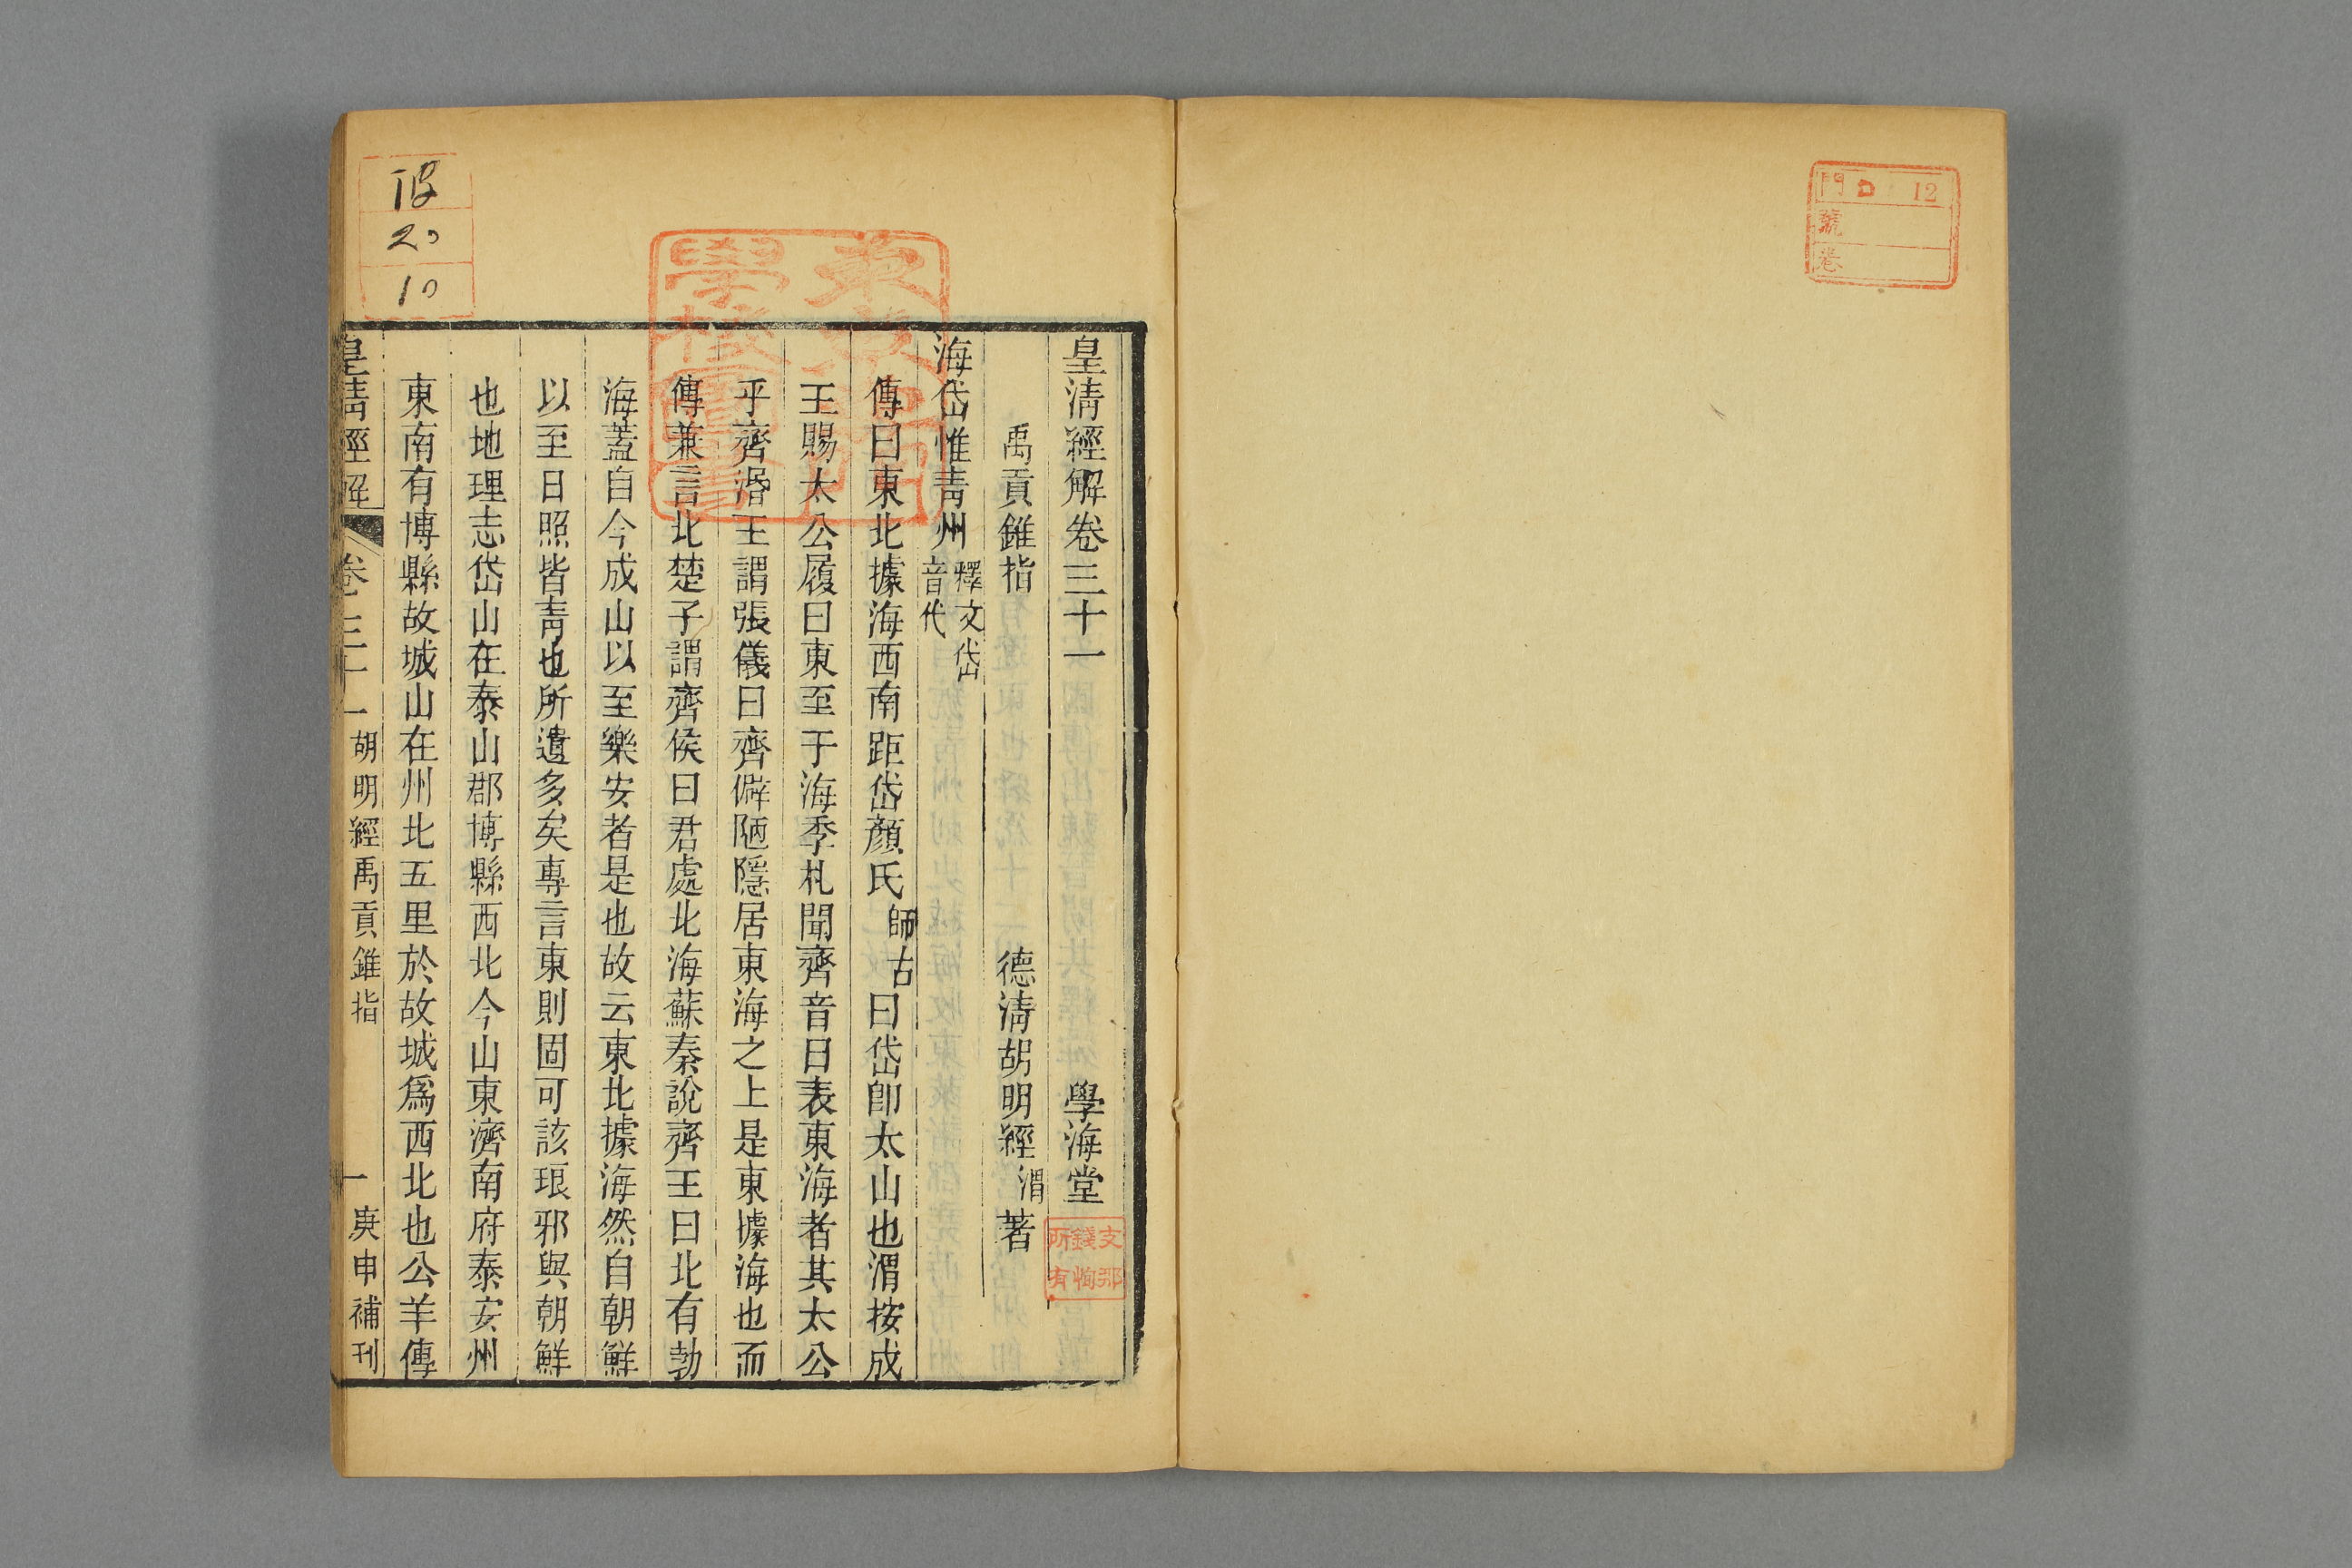 門 口 12
號
卷
皇清經解卷三十一 學海堂
支那
錢恂
所有
禹貢錐指 德清胡明經渭著
海岱惟青州釋文岱音代
傳曰東北據海西南距岱顏氏師古曰岱卽太山也渭按成
王賜太公履曰東至于海季札聞齊音曰表東海者其太公
乎齊湣王謂張儀曰齊僻陋隱居東海之上是東據海也而
傳兼言北楚子謂齊侯曰君處北海蘇秦說齊王曰北有勃
海蓋自今成山以至樂安者是也故云東北據海然自朝鮮
以至日照皆青也所遺多矣專言東則固可該琅邪與朝鮮
也地理志岱山在泰山郡博縣西北今山東濟南府泰安州
東南有博縣故城山在州北五里於故城爲西北也公羊傳
皇清經解 卷三十一 胡明經禹貢錐指 一 庚申補刊
20
10